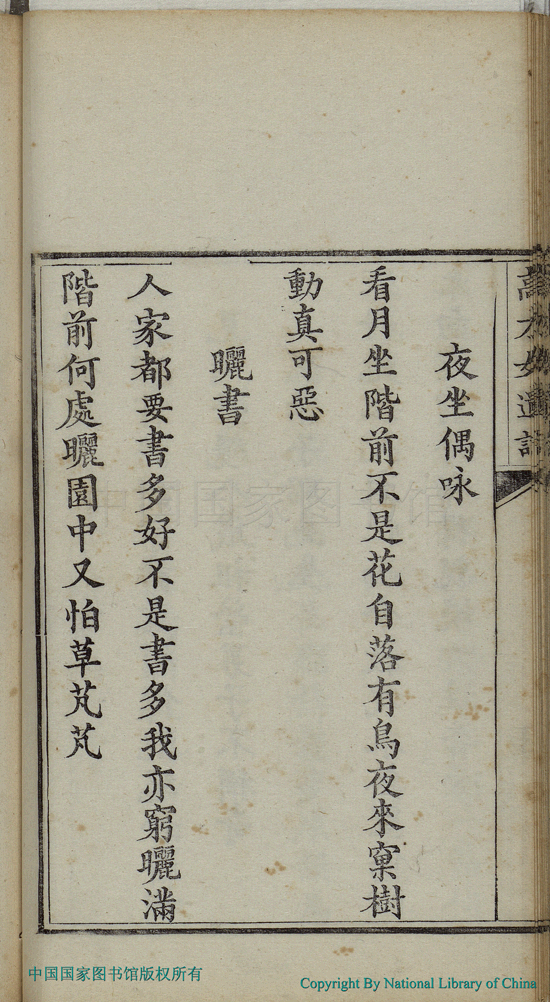 夜坐偶咏
看月坐階前不是花自落有鳥夜來窠樹
動真可惡
曬書
人家都要書多好不是書多我亦窮曬滿
階前何處曬園中又怕草芃芃
中国国家图书馆
中国国家图书馆版权所有
Copyright By National Library of China